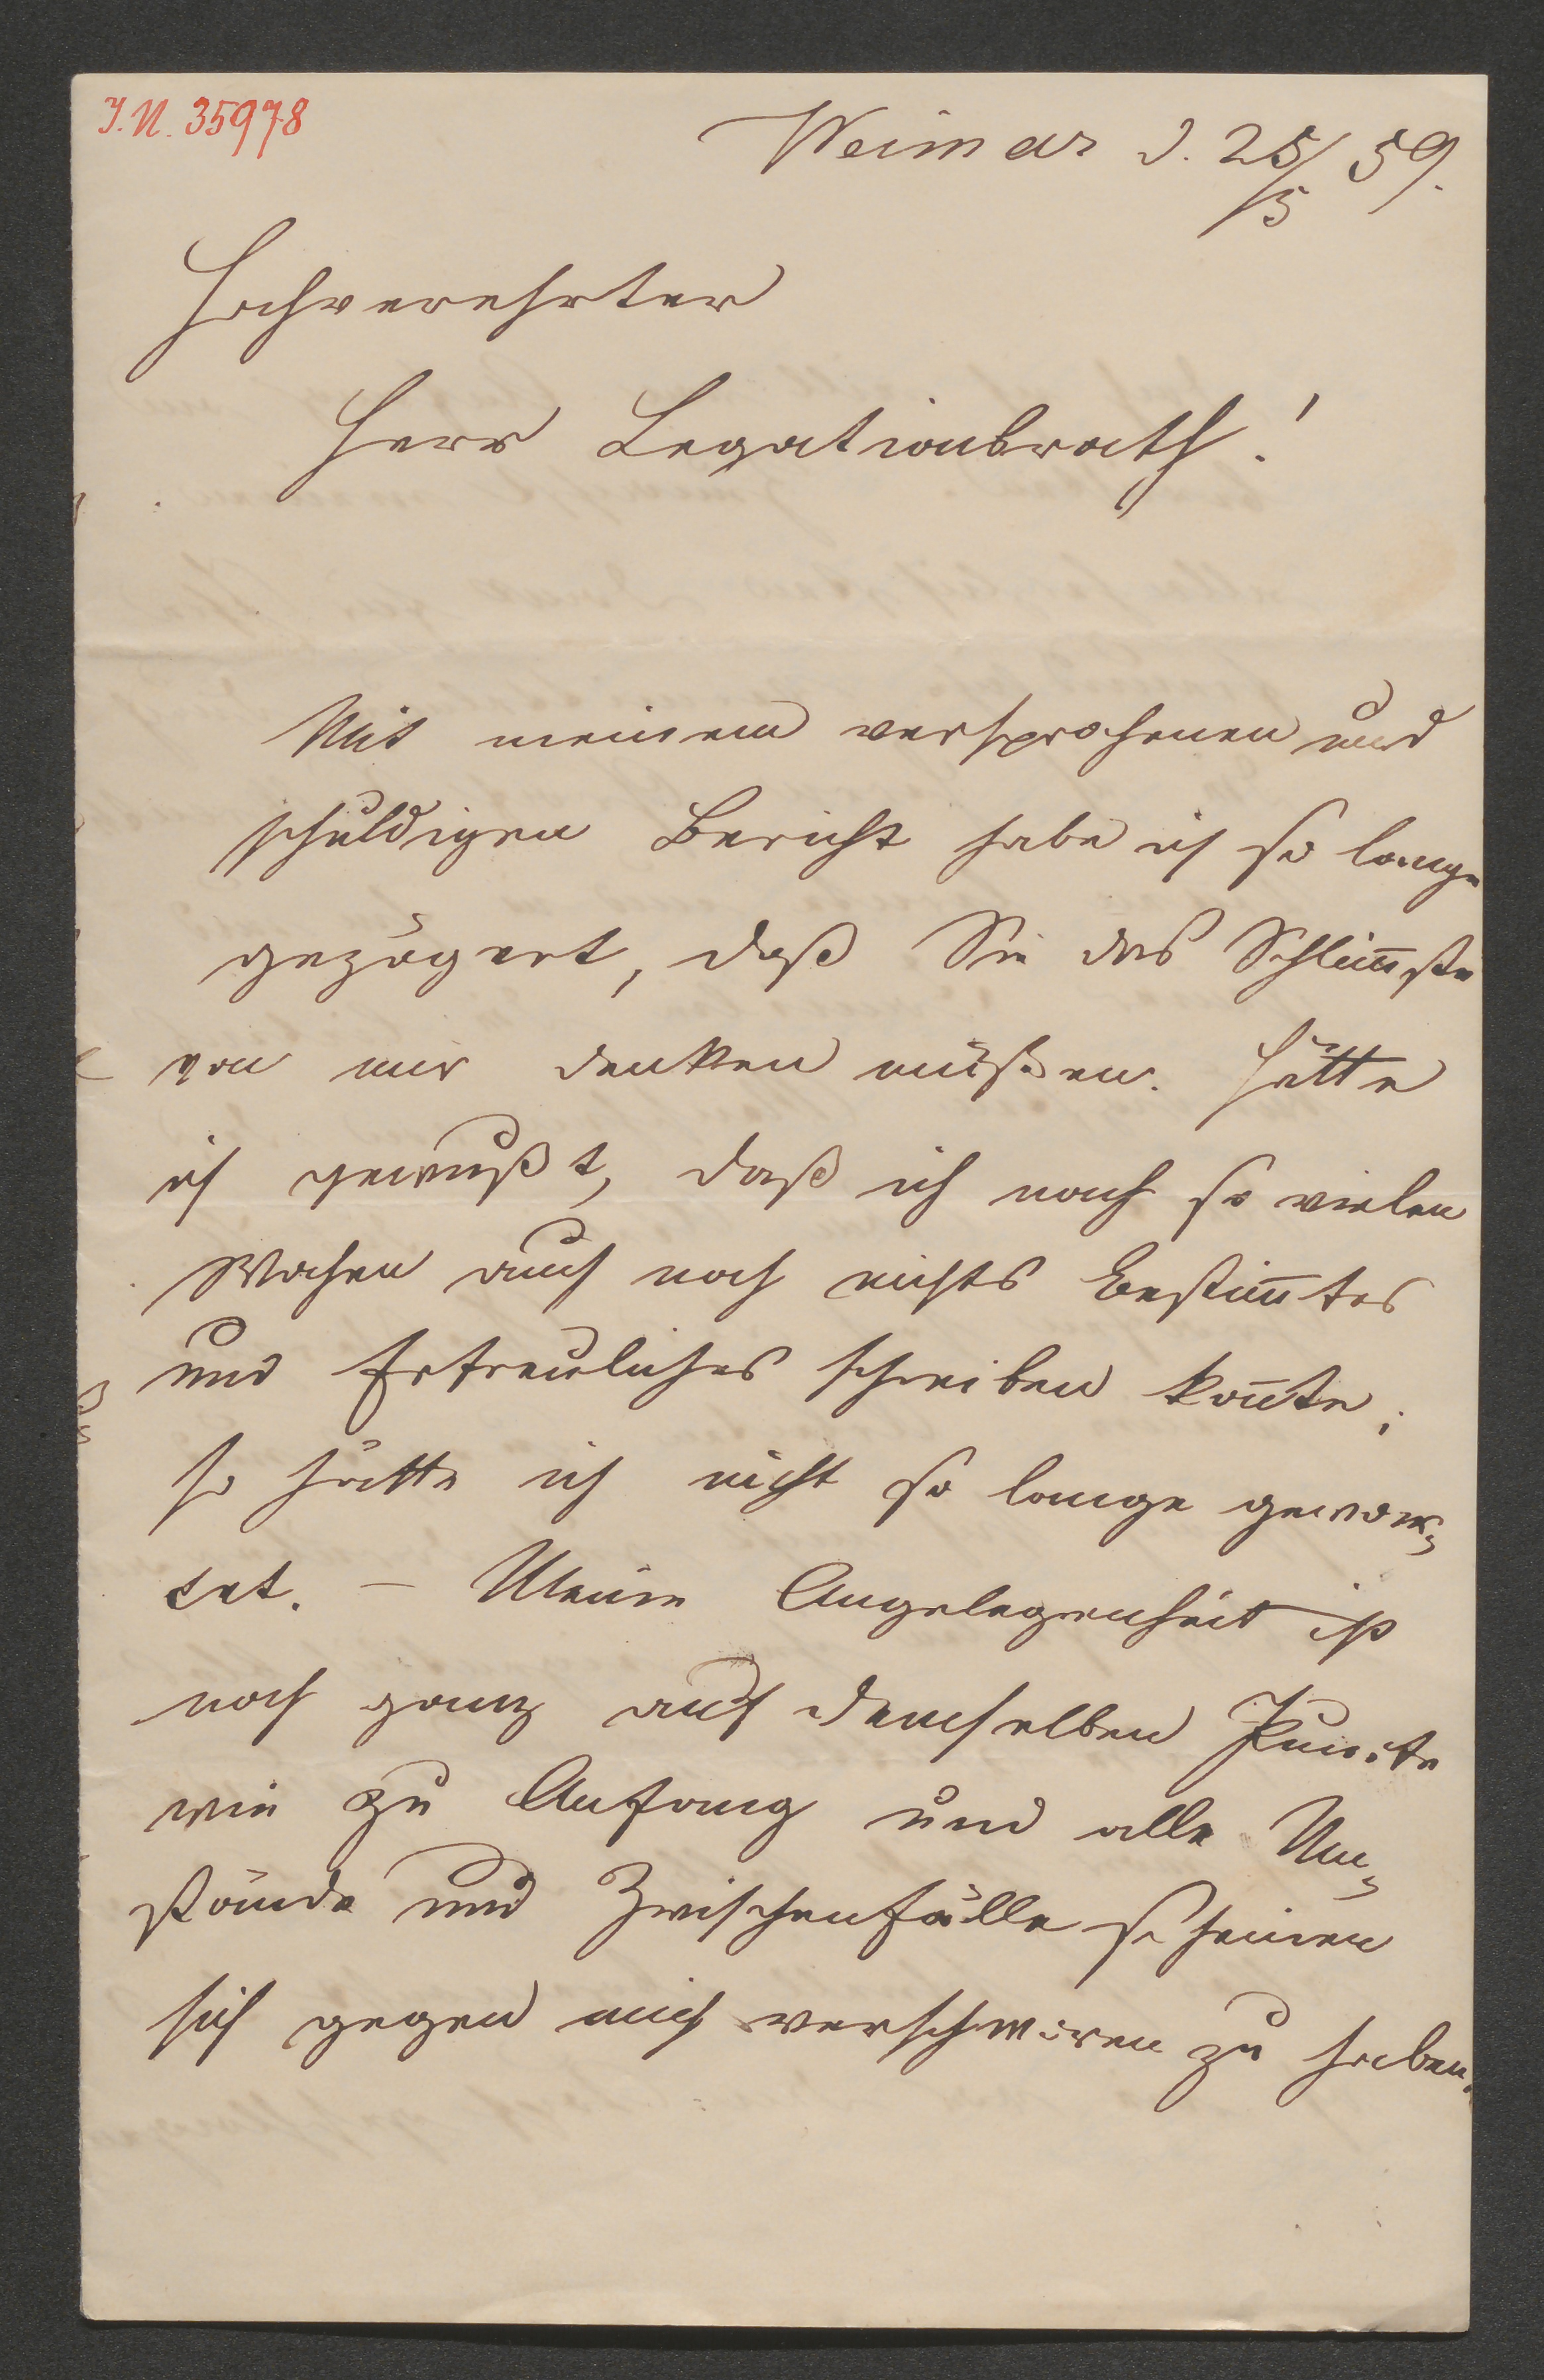 I.N. 35978
Weimar d. 25/5 59.
Hochverehrter
Herr Legationsrath!
Mit meinem versprochenen und
schuldigen Bericht habe ich so lange
gezögert, daß Sie das Schlim̅ste
von mir denken müßen. Hätte
ich gewußt, daß ich nach so vielen
Wochen auch noch nichts Bestim̅tes
und Erfreuliches schreiben kon̅te,
so hätte ich nicht so lange gewar-
tet. – Meine Angelegenheit ist
noch ganz auf demselben Puncte
wie zu Anfang und alle Um-
stände und Zwischenfälle scheinen
sich gegen mich verschworen zu haben.